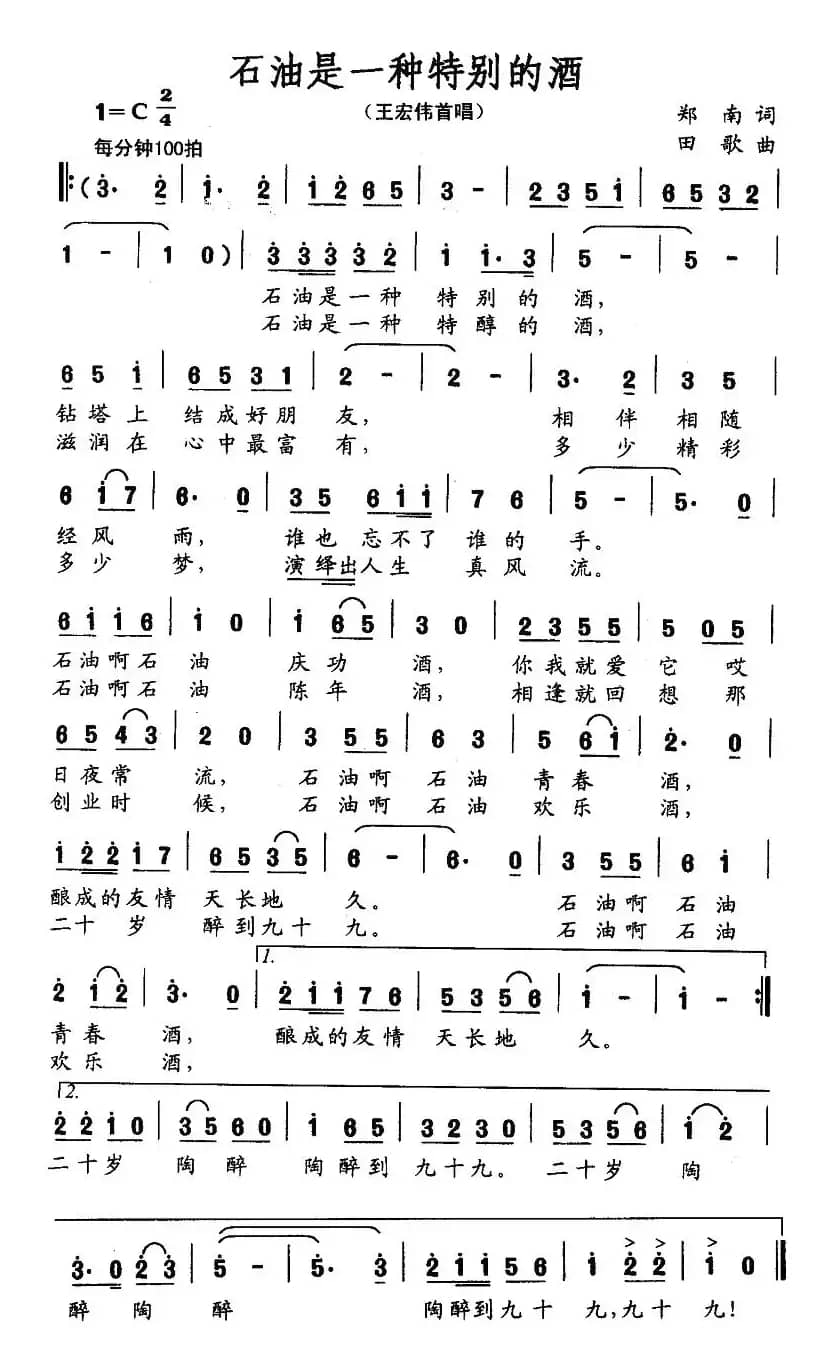 石油是一种特别的酒
（王宏伟首唱）
1=C 2/4
郑 南 词
每分钟100拍
田 歌 曲
石油是一种 特别的 酒，
石油是一种 特醇的 酒，
钻塔上 结成好朋 友， 相 伴 相随
滋润在 心中最富 有， 多 少 精彩
经风 雨， 谁也 忘不了 谁的 手。
多少 梦， 演绎出人生 真风 流。
石油啊石 油 庆功 酒， 你我就爱 它 哎
石油啊石 油 陈年 酒， 相逢就回 想 那
日夜常 流， 石 油啊 石油 青春 酒，
创业时 候， 石 油啊 石油 欢乐 酒，
酿成的友情 天长地 久。 石 油啊 石油
二十 岁 醉到九十 九。 石 油啊 石油
1.
青春 酒， 酿成的友情 天长地 久。
欢乐 酒，
2.
二十岁 陶醉 陶醉到 九十九。 二十岁 陶
醉 陶 醉 陶醉到九十 九，九十 九！